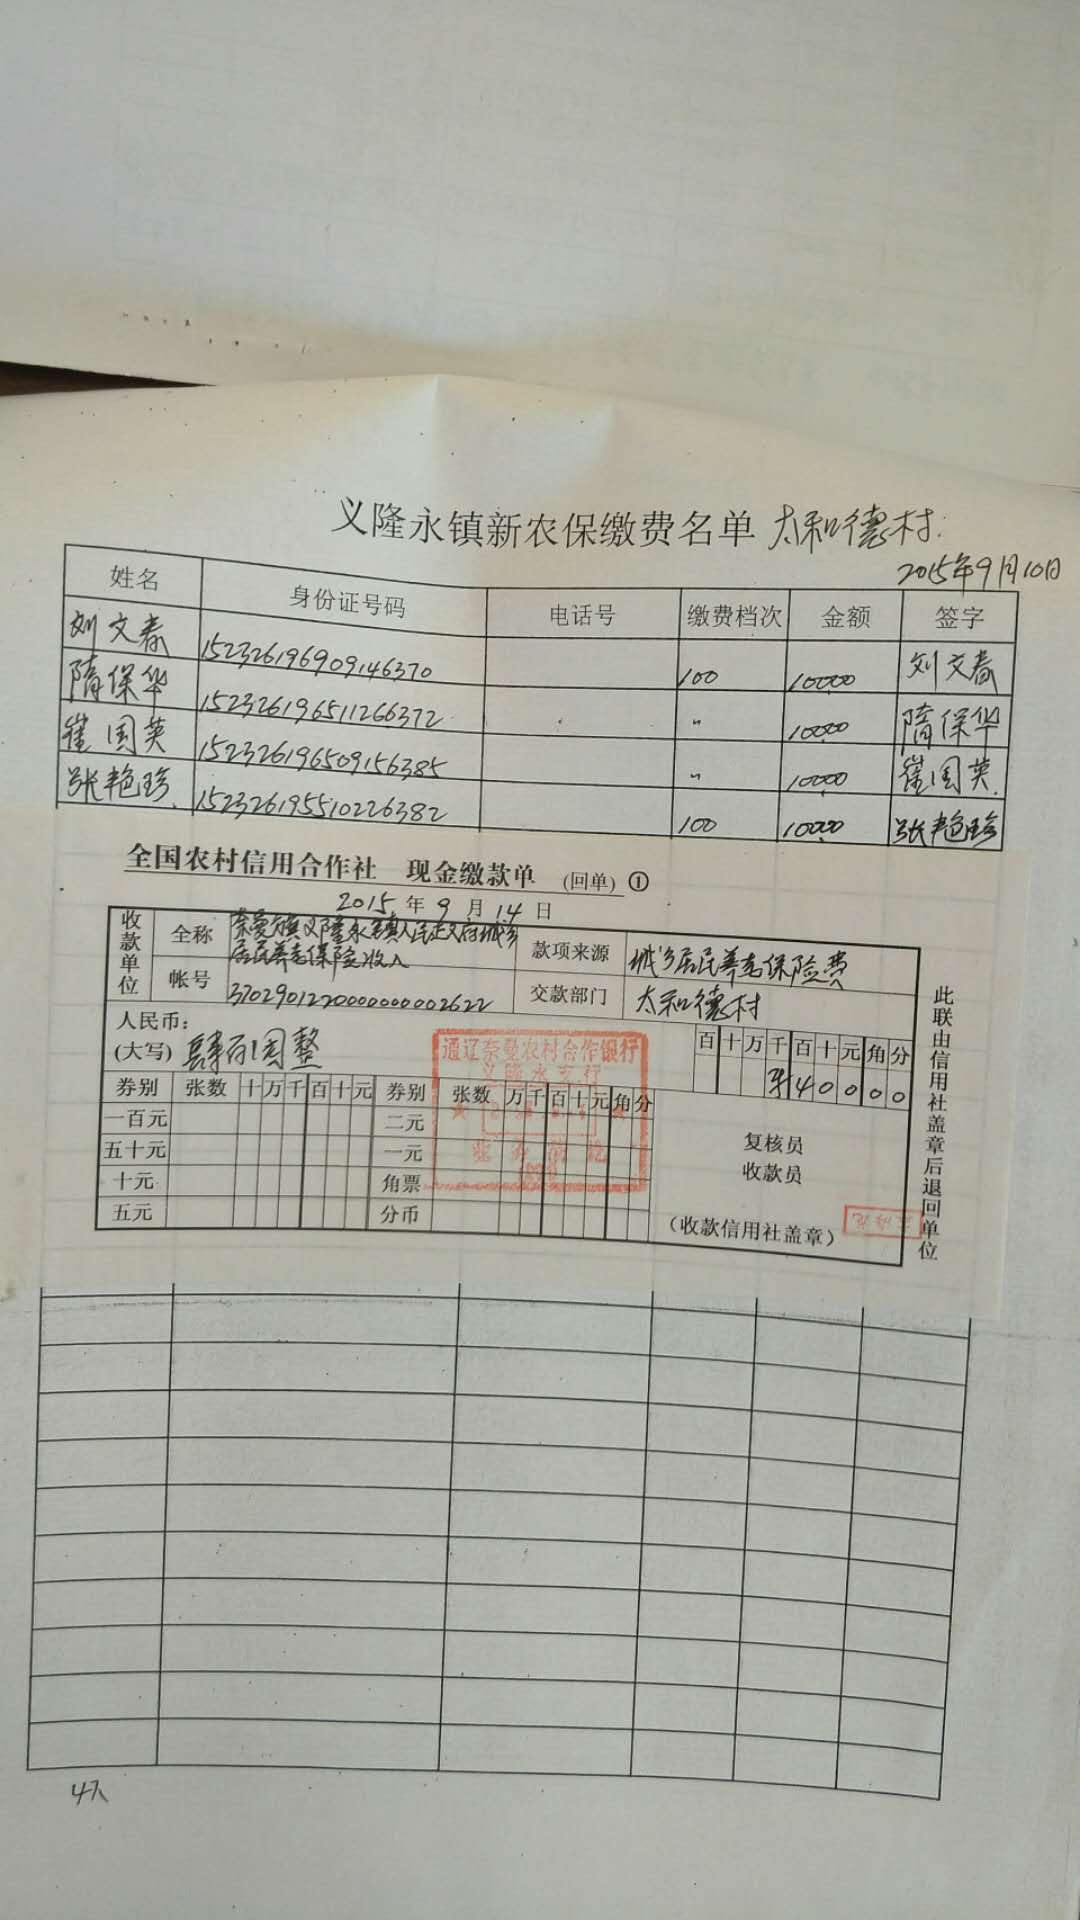 义隆永镇新农保缴费名单 太和德村
2015年9月10日
姓名 身份证号码 电话号 缴费档次 金额 签字
刘文春 152326196909146370 100 100.00 刘文春
隋保华 152326196511266372 〃 100.00 隋保华
崔国英 152326196509156385 〃 100.00 崔国英
张艳珍 152326195510226382 100 100.00 张艳珍
全国农村信用合作社 现金缴款单 (回单) ①
2015年9月14日
收款单位 全称 奈曼旗义隆永镇人民政府城乡居民养老保险收入 款项来源 城乡居民养老保险费
帐号 37029012200000000002622 交款部门 太和德村
人民币:
(大写) 肆百圆整 百十万千百十元角分
¥40000
券别 张数 十万千百十元 券别 张数 万千百十元角分
一百元 二元
五十元 一元
十元 角票
五元 分币
复核员
收款员
(收款信用社盖章)
此联由信用社盖章后退回单位
通辽奈曼农村合作银行
义隆永支行
4人